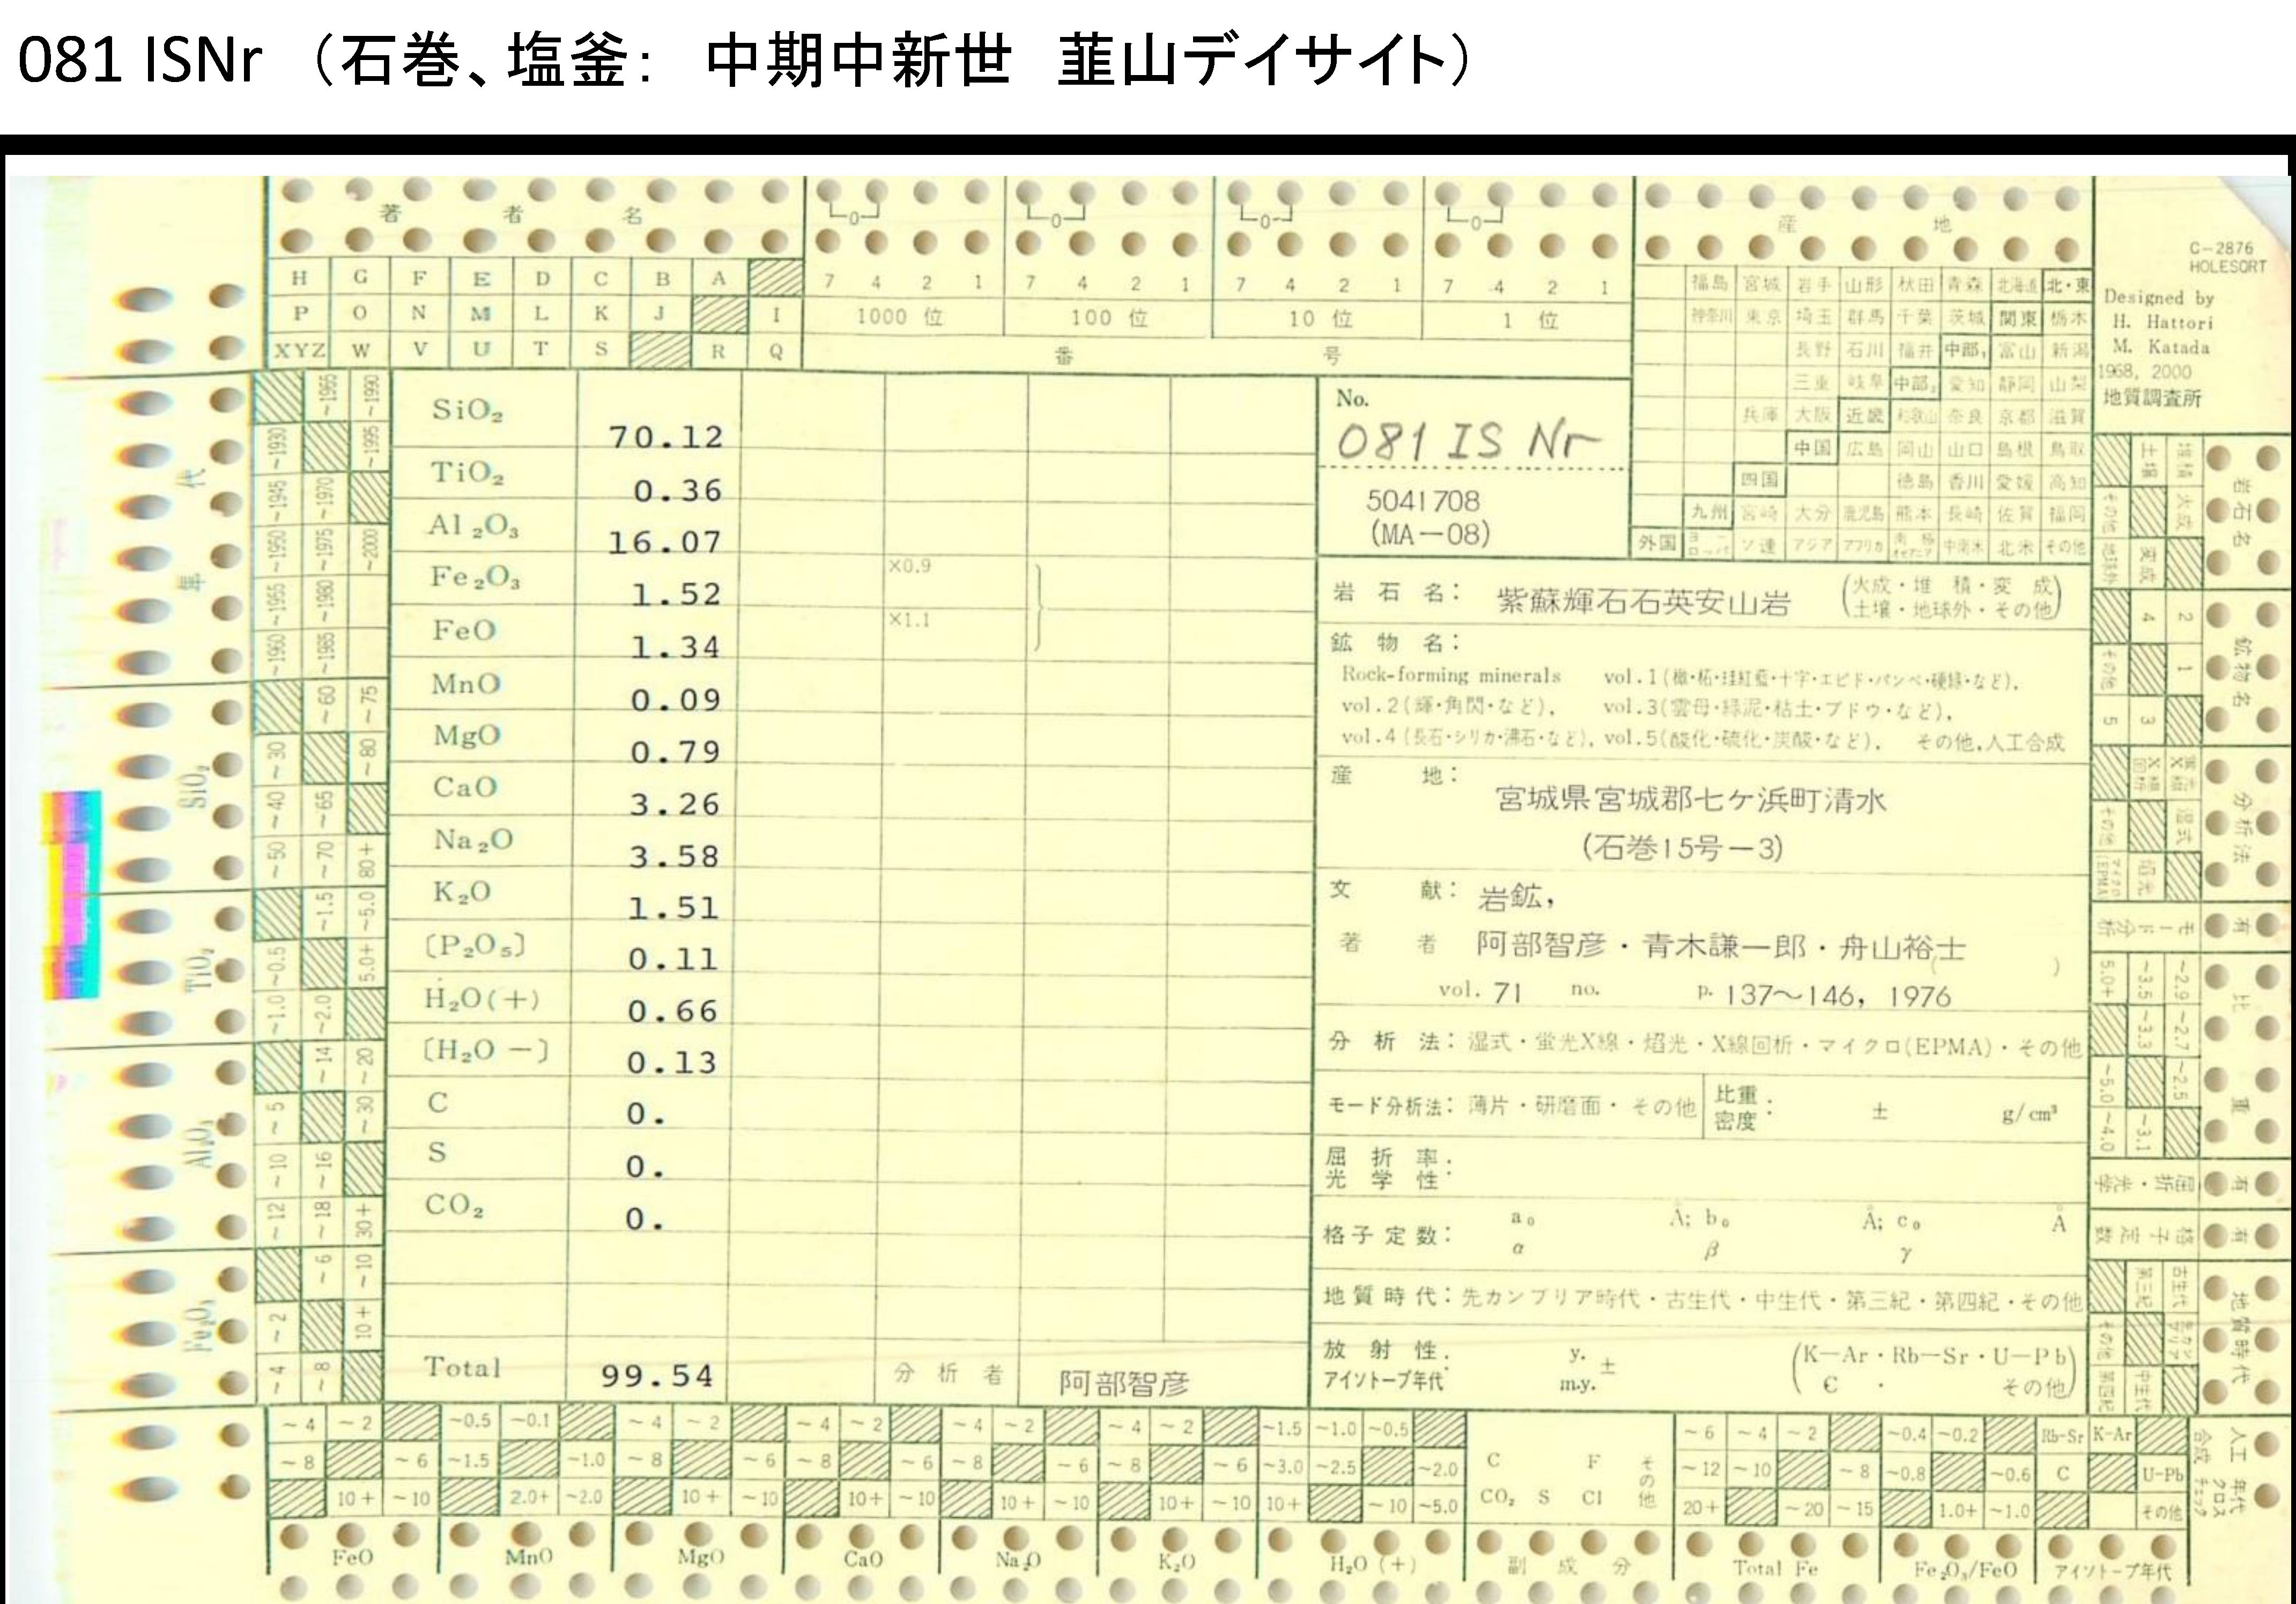 081 ISNr （石巻、塩釜： 中期中新世 韮山デイサイト）
著 者 名
産 地
0 0 0 0
C-2876
HOLESORT
H G F E D C B A
P O N M L K J I
XYZ W V U T S R Q
7 4 2 1 7 4 2 1 7 4 2 1 7 4 2 1
1000 位 100 位 10 位 1 位
番 号
福島 宮城 岩手 山形 秋田 青森 北海道 北・東
神奈川 東京 埼玉 群馬 千葉 茨城 関東 栃木
長野 石川 福井 中部₁ 富山 新潟
三重 岐阜 中部₂ 愛知 静岡 山梨
兵庫 大阪 近畿 和歌山 奈良 京都 滋賀
中国 広島 岡山 山口 島根 鳥取
四国 徳島 香川 愛媛 高知
九州 宮崎 大分 鹿児島 熊本 長崎 佐賀 福岡
外国 ヨーロッパ ソ連 アジア アフリカ 中南米 北米 その他
Designed by
H. Hattori
M. Katada
1968, 2000
地質調査所
No.
081 IS Nr
5041708
(MA−08)
SiO₂ 70.12
TiO₂ 0.36
Al₂O₃ 16.07
Fe₂O₃ 1.52 ×0.9
FeO 1.34 ×1.1
MnO 0.09
MgO 0.79
CaO 3.26
Na₂O 3.58
K₂O 1.51
〔P₂O₅〕 0.11
H₂O(+) 0.66
〔H₂O −〕 0.13
C 0.
S 0.
CO₂ 0.
Total 99.54 分 析 者 阿部智彦
岩 石 名： 紫蘇輝石石英安山岩 (火成・堆 積・変 成
土壌・地球外・その他)
鉱 物 名：
Rock-forming minerals vol.1(橄・柘・珪紅藍・十字・エピド・パンペ・硬緑・など),
vol.2(輝・角閃・など), vol.3(雲母・緑泥・粘土・ブドウ・など),
vol.4(長石・シリカ・沸石・など), vol.5(酸化・硫化・炭酸・など), その他,人工合成
産 地：
宮城県宮城郡七ケ浜町清水
(石巻15号−3)
文 献： 岩鉱,
著 者 阿部智彦・青木謙一郎・舟山裕士
( )
vol. 71 no. p. 137〜146, 1976
分 析 法：湿式・蛍光X線・焔光・X線回析・マイクロ(EPMA)・その他
モード分析法：薄片・研磨面・その他 比重
密度： ± g/cm³
屈 折 率：
光 学 性：
格子定数： a₀ Å; b₀ Å; c₀ Å
α β γ
地質時代：先カンブリア時代・古生代・中生代・第三紀・第四紀・その他
放 射 性． y. ± (K−Ar・Rb−Sr・U−Pb
アイソトープ年代 m.y. C ・ その他)
年 代
~1965 ~1990
~1930 ~1995
~1945 ~1970
~1950 ~1975 ~2000
~1955 ~1980
~1960 ~1985
SiO₂
~60 ~75
~30 ~80
~40 ~65
~50 ~70 80+
TiO₂
~1.5 ~5.0
~0.5 5.0+
~1.0 ~2.0
Al₂O₃
~14 ~20
~5 ~30
~10 ~16
~12 ~18 30+
Fe₂O₃
~6 ~10
~2 10+
~4 ~8
岩石名
堆積 土壌
火成 その他
変成 地球外
鉱物名
2 4
1 その他
3 5
分析法
湿式 その他
焔光 マイクロ(EPMA)
有 モード分析
比 重
~2.9 ~3.5 5.0+
~2.7 ~3.3
~2.5 ~5.0
~3.1 ~4.0
有 屈折・光学
有 格子定数
地質時代
古生代 第三紀
その他
中生代 第四紀
~4 ~2 ~0.5 ~0.1 ~4 ~2 ~4 ~2 ~4 ~2 ~4 ~2 ~1.5 ~1.0 ~0.5 ~6 ~4 ~2 ~0.4 ~0.2 Rb-Sr K-Ar
~8 ~6 ~1.5 ~1.0 ~8 ~6 ~8 ~6 ~8 ~6 ~8 ~6 ~3.0 ~2.5 ~2.0 C F その他 ~12 ~10 ~8 ~0.8 ~0.6 C U-Pb
10+ ~10 2.0+ ~2.0 10+ ~10 10+ ~10 10+ ~10 10+ ~10 10+ ~10 ~5.0 CO₂ S Cl 20+ ~20 ~15 1.0+ ~1.0 その他
人工合成 年代クロスチェック
FeO MnO MgO CaO Na₂O K₂O H₂O (+) 副 成 分 Total Fe Fe₂O₃/FeO アイソトープ年代